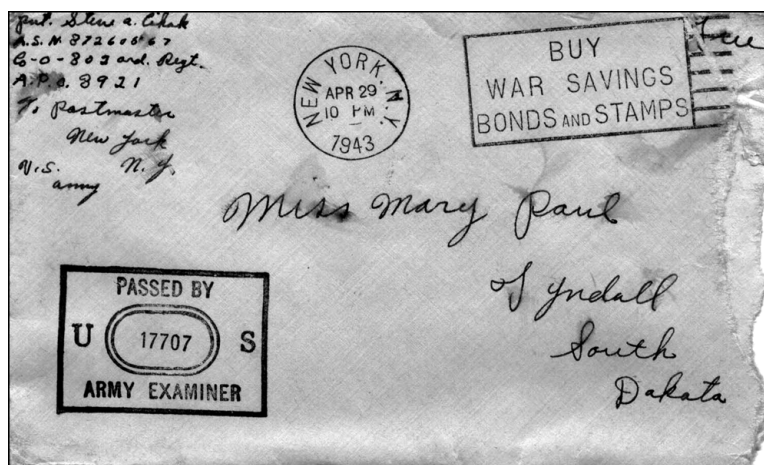 Pvt. Steve A. Cihak
A.S.N. 37260667
Co-O-802 Ord. Regt.
A.P.O. 3921
To Postmaster
New York
N.Y.
U.S.
Army
NEW YORK, N.Y.
APR 29
10 PM
1943
BUY
WAR SAVINGS
BONDS AND STAMPS
Free
Miss Mary Paul
Tyndall
South
Dakota
PASSED BY
U 17707 S
ARMY EXAMINER